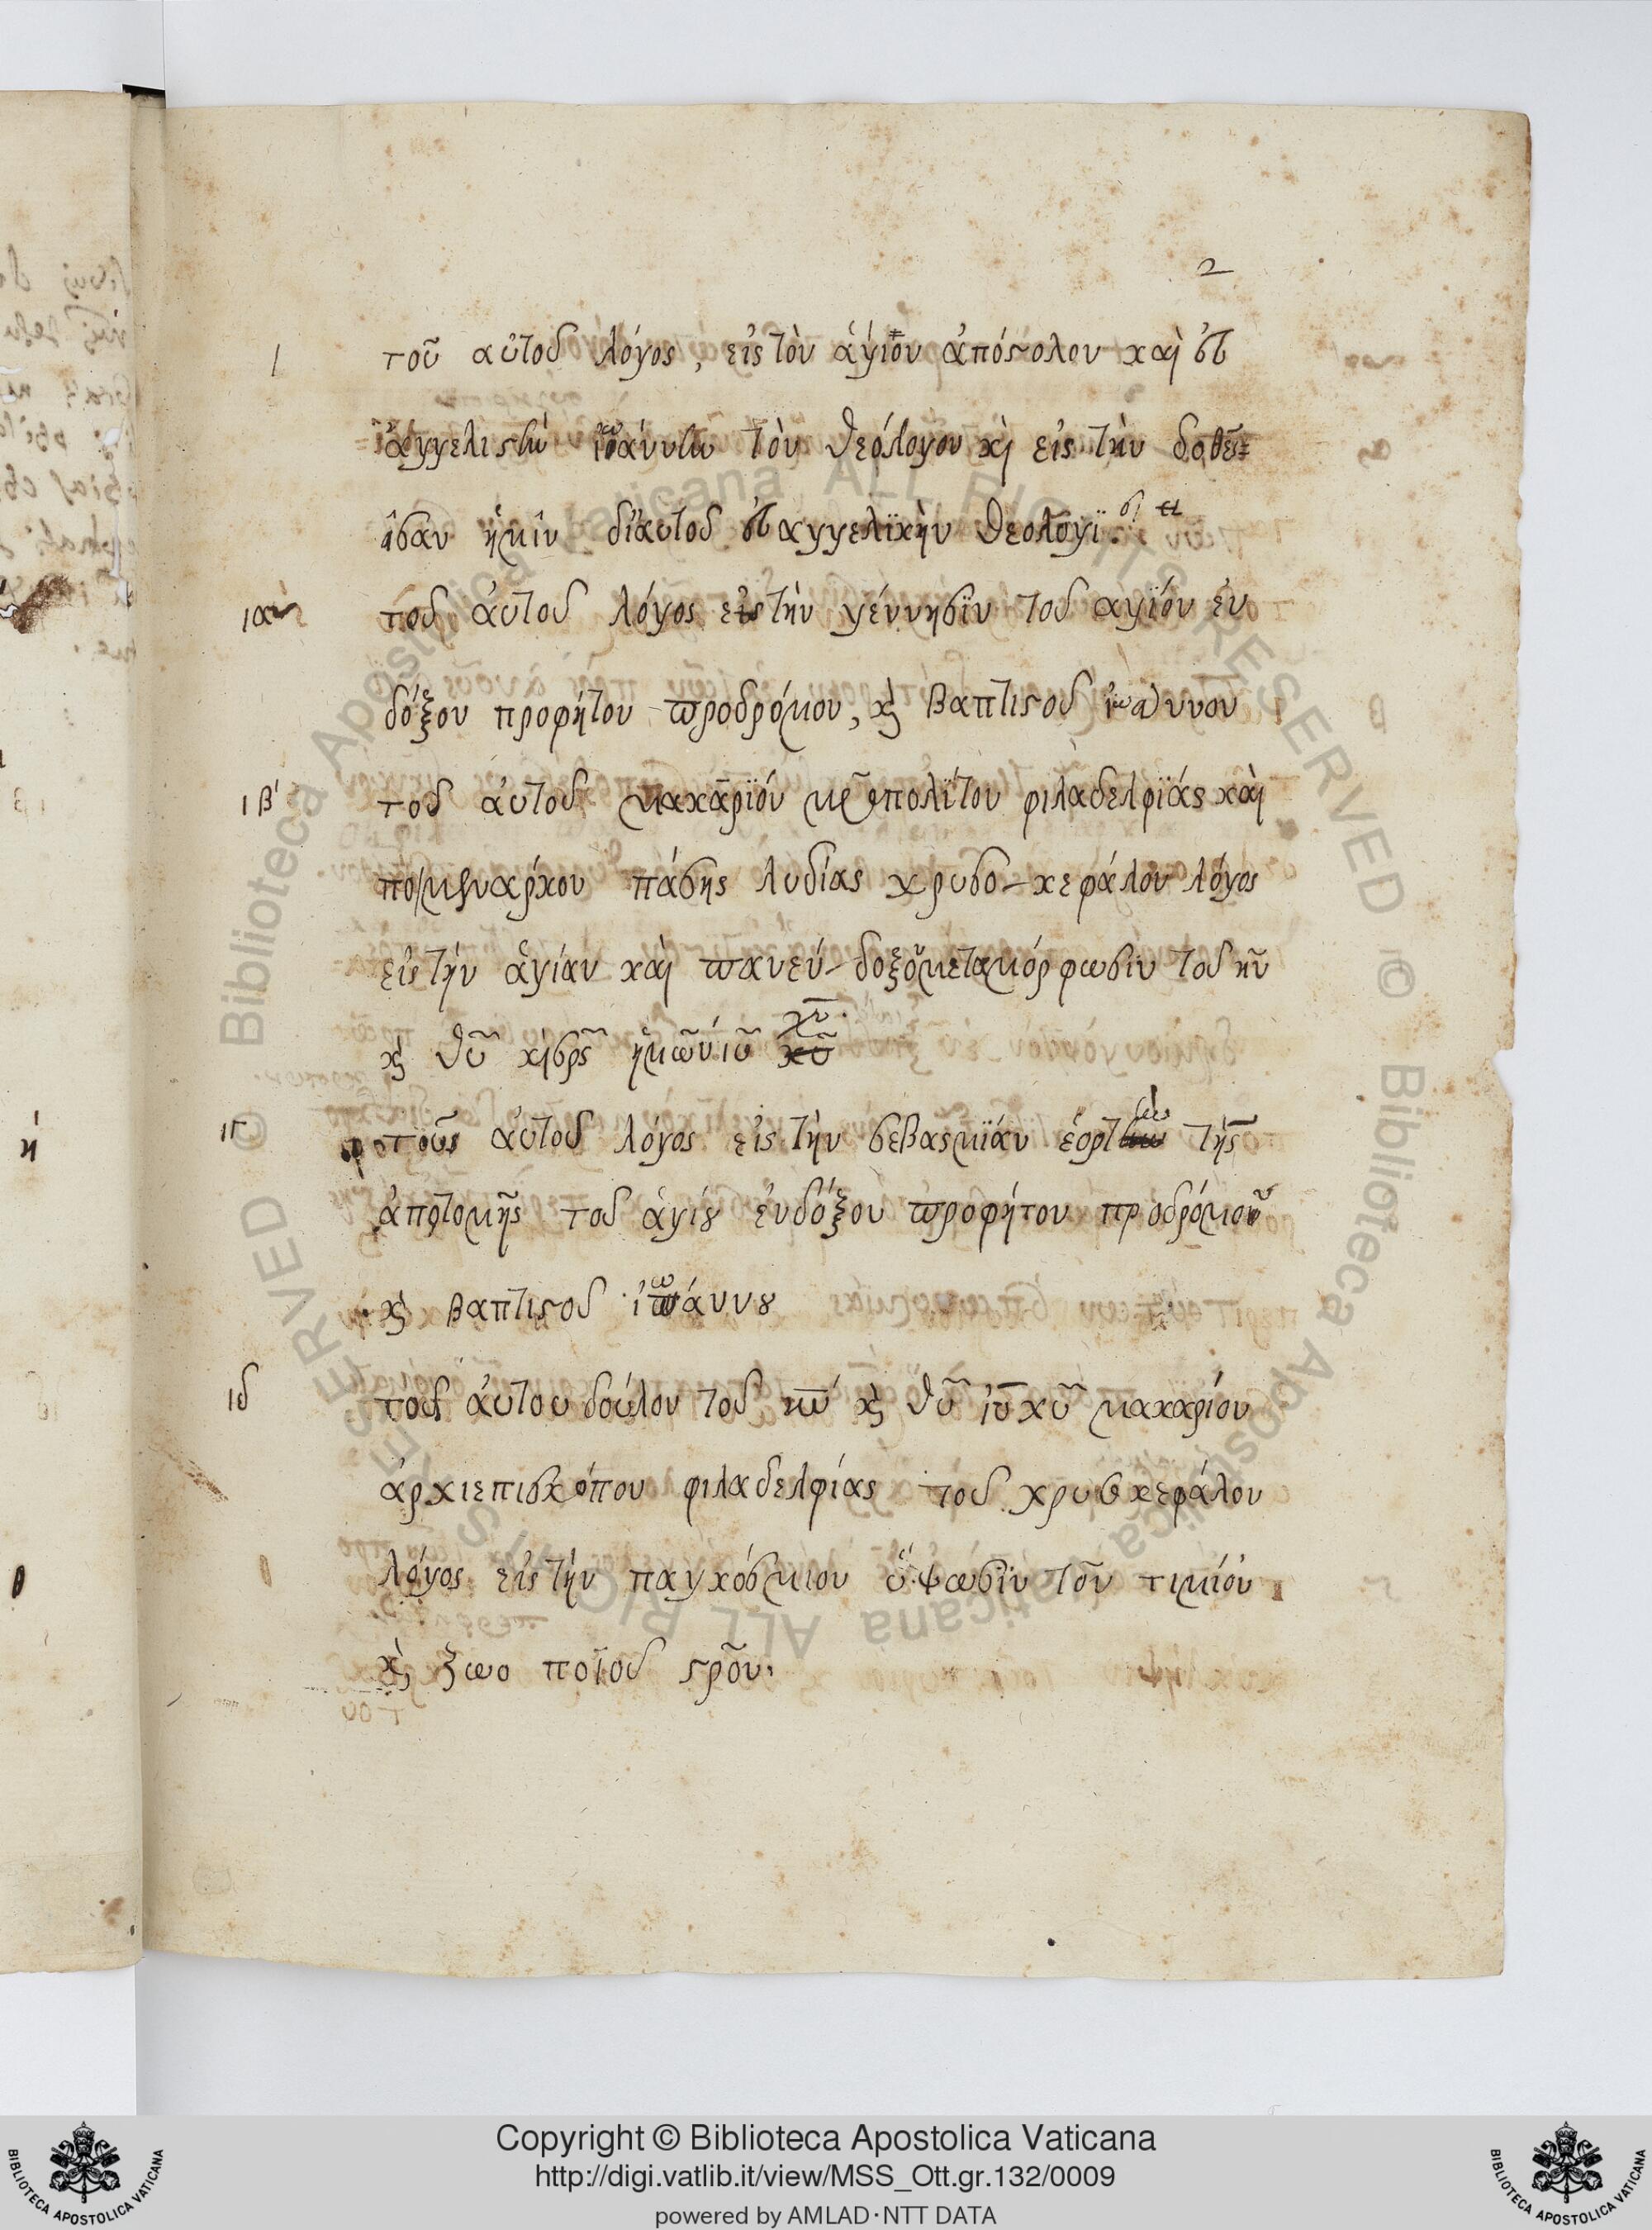 2
ι τοῦ αὐτοῦ λόγος, εἰς τὸν ἅγιον ἀπόστολον καὶ εὐ
ἀγγελιστὴν ἰωάννην τὸν θεόλογον κὶ εἰς τὴν δοθεῖ=
ισαν ἡμῖν δι αὐτοῦ εὐαγγελϊκὴν θεολογΐ
ια τοῦ ἀυτοῦ λόγος εἰς τὴν γέννησϊν τοῦ αγϊόυ ἐν
δόξου προφήτου προδρόμου, κὶ βαπτιστοῦ ἰωαννου
ιβ' τοῦ ἀυτοῦ μακαρϊόυ μρ̃οπολΐτου φιλαδελφϊάς καὶ
ποιμηναρχου πάσης λυδίας χρυσο-κεφάλου λόγος
εἰς τὴν ἁγίαν καὶ πανεύ-δοξον μεταμόρφωσιν τοῦ κυ̃
κὶ θυ̃ κὶ σρ̃ς ἡμῶν ιυ̃ χυ̃
ιγ τοῦ αὐτοῦ λόγος εἰς τὴν σεβασμϊάν ἑορτὴν τῆς
ἀποτομῆς τοῦ ἁγίȣ ἐνδόξου προφήτου προδρόμου
κὶ βαπτιστοῦ ἰωάννȣ
ιδ τοῦ ἀυτου δούλου τοῦ κυ̃ κὶ θυ̃ ιυ̃ χυ̃ μακαρίου
ἀρχιεπισκόπου φιλαδελφίας τοῦ χρυσκεφάλου
λόγος εἰς τὴν παγκόσμιον ὕψωσϊν τοῦ τιμίου
κὶ ζωο ποϊοῦ στρ̃ου.
Copyright © Biblioteca Apostolica Vaticana
http://digi.vatlib.it/view/MSS_Ott.gr.132/0009
powered by AMLAD·NTT DATA
BIBLIOTECA APOSTOLICA VATICANA
BIBLIOTECA APOSTOLICA VATICANA